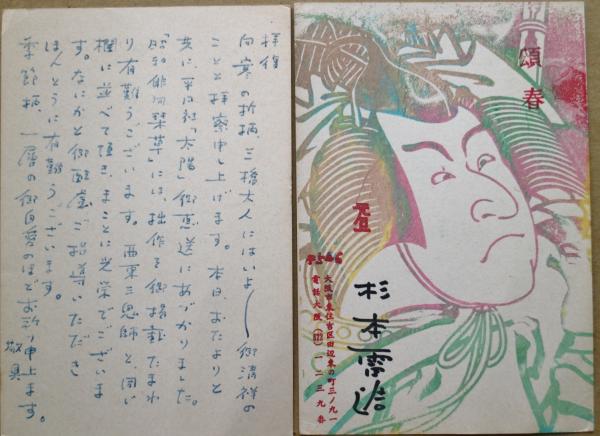 拝復
向寒の折柄、三橋大人にはいよ〳〵御清祥の
ことと拝察申し上げます。本日、おたよりと
共に、平凡社「太陽」御恵送にあづかりました。
「昭和俳句栞草」には、拙作を御掲載たまわ
り有難うございます。西東三鬼師と、同い
欄に並べて頂き、まことに光栄でございま
す。なにかと御配慮ご指導いただき
ほんとうに有難うございます。
季節柄、一層の御自愛のほどお祈り申上ます。
敬具
頌春
元旦
杉本雷造
大阪市東住吉区田辺東の町三ノ九一
電話大阪 一二三九番